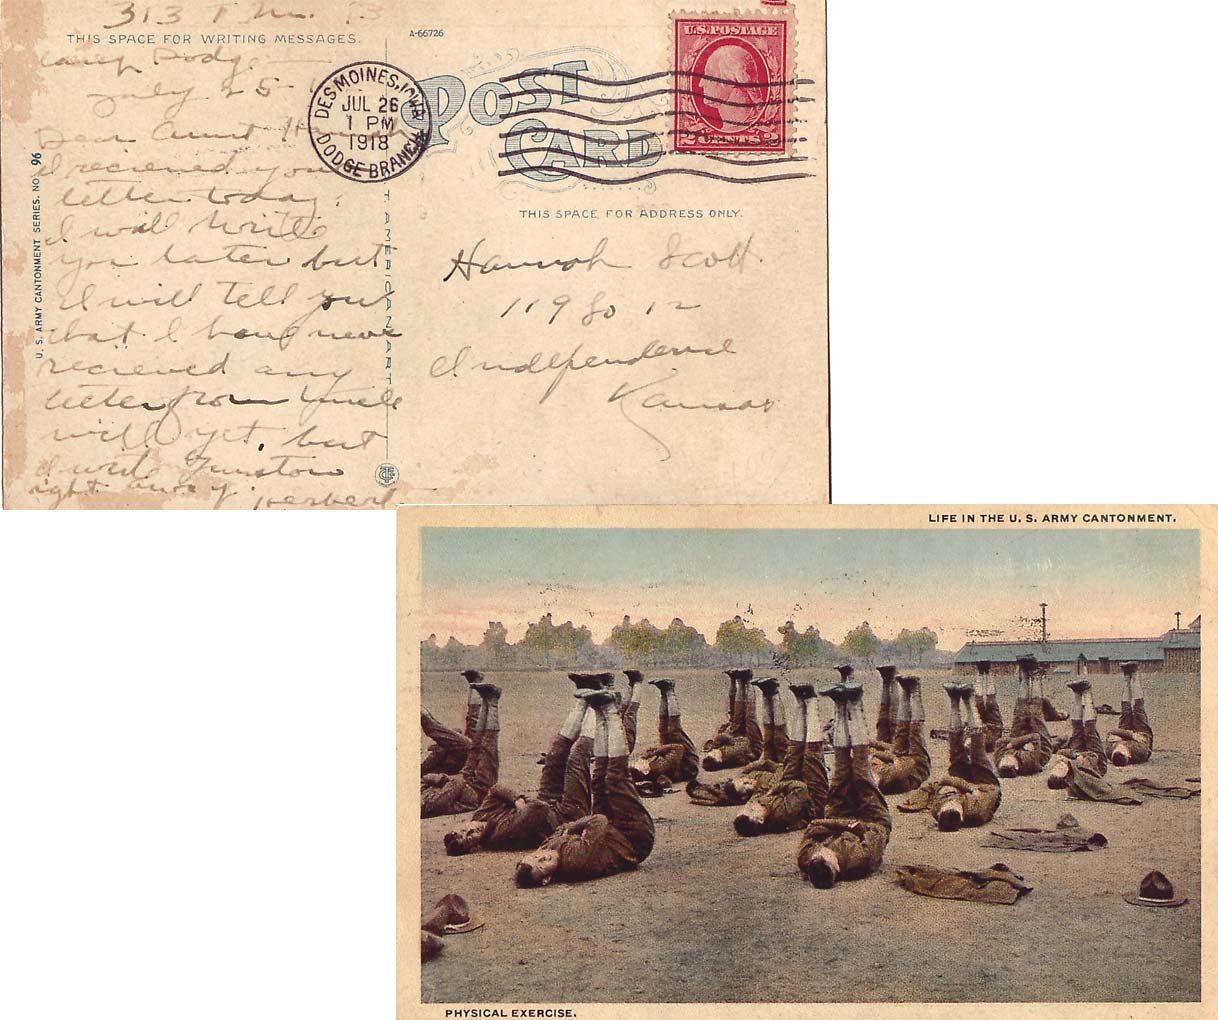 313 T. M.
THIS SPACE FOR WRITING MESSAGES.
A-66726
Camp Dodge
July 25
Dear Aunt
I recieved your
letter today.
I will write
you later but
I will tell you
that I have never
recieved any
letter from Uncle
will yet, but
I write Funston
right away. Herbert
U. S. ARMY CANTONMENT SERIES. NO. 96
DES MOINES, IOWA
JUL 26
1 PM
1918
DODGE BRANCH
POST
CARD
U.S. POSTAGE
2 CENTS 2
T AMERICAN ART
THIS SPACE FOR ADDRESS ONLY.
Hannah Scott
119 So 12
Independence
Kansas
LIFE IN THE U. S. ARMY CANTONMENT.
PHYSICAL EXERCISE.